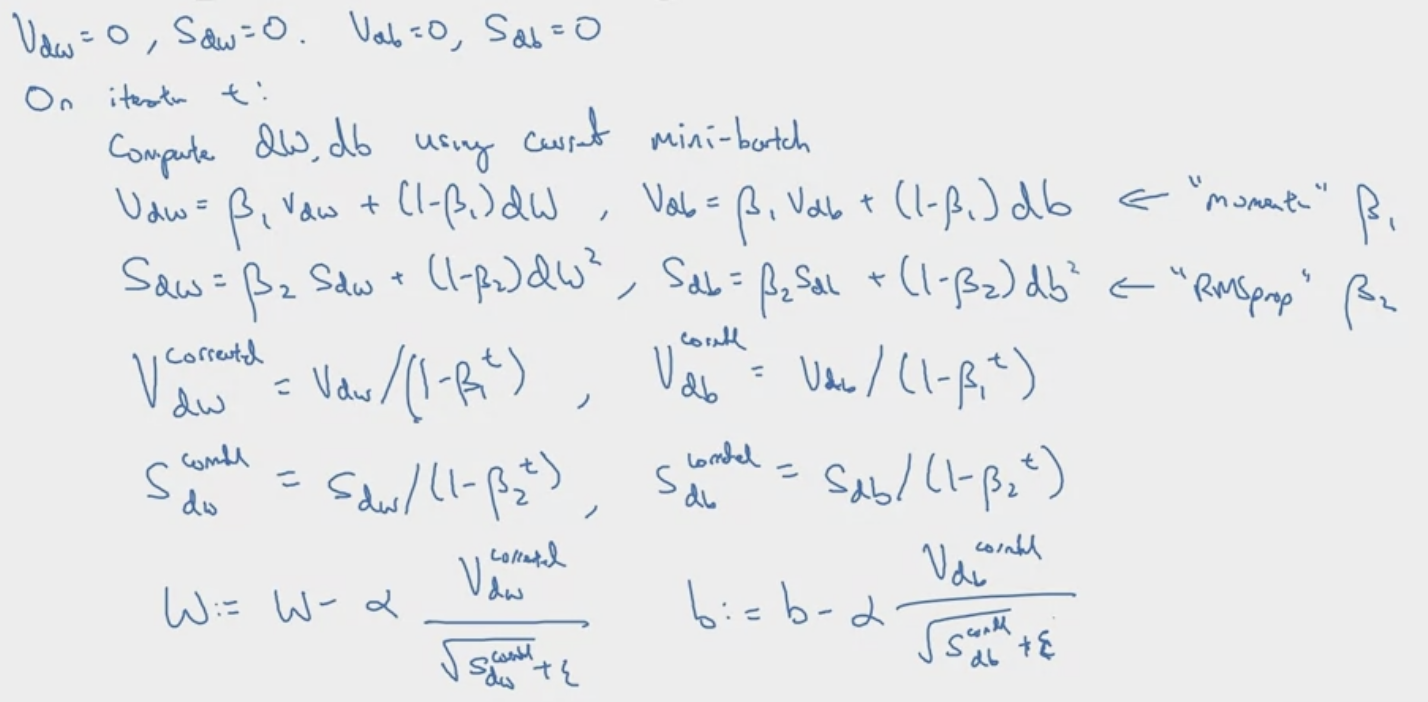 V_dw = 0, S_dw = 0. V_db = 0, S_db = 0
On iteratn t:
Compute dW, db using current mini-batch
V_dw = β₁ V_dw + (1-β₁) dW , V_db = β₁ V_db + (1-β₁) db ← "momentu" β₁
S_dw = β₂ S_dw + (1-β₂) dW² , S_db = β₂ S_db + (1-β₂) db² ← "RMSprop" β₂
V_dw^corrected = V_dw/(1-β₁^t) , V_db^corrected = V_db/(1-β₁^t)
S_dw^corrected = S_dw/(1-β₂^t) , S_db^corrected = S_db/(1-β₂^t)
W := W - α V_dw^corrected / √S_dw^corrected + ε b := b - α V_db^corrected / √S_db^corrected + ε